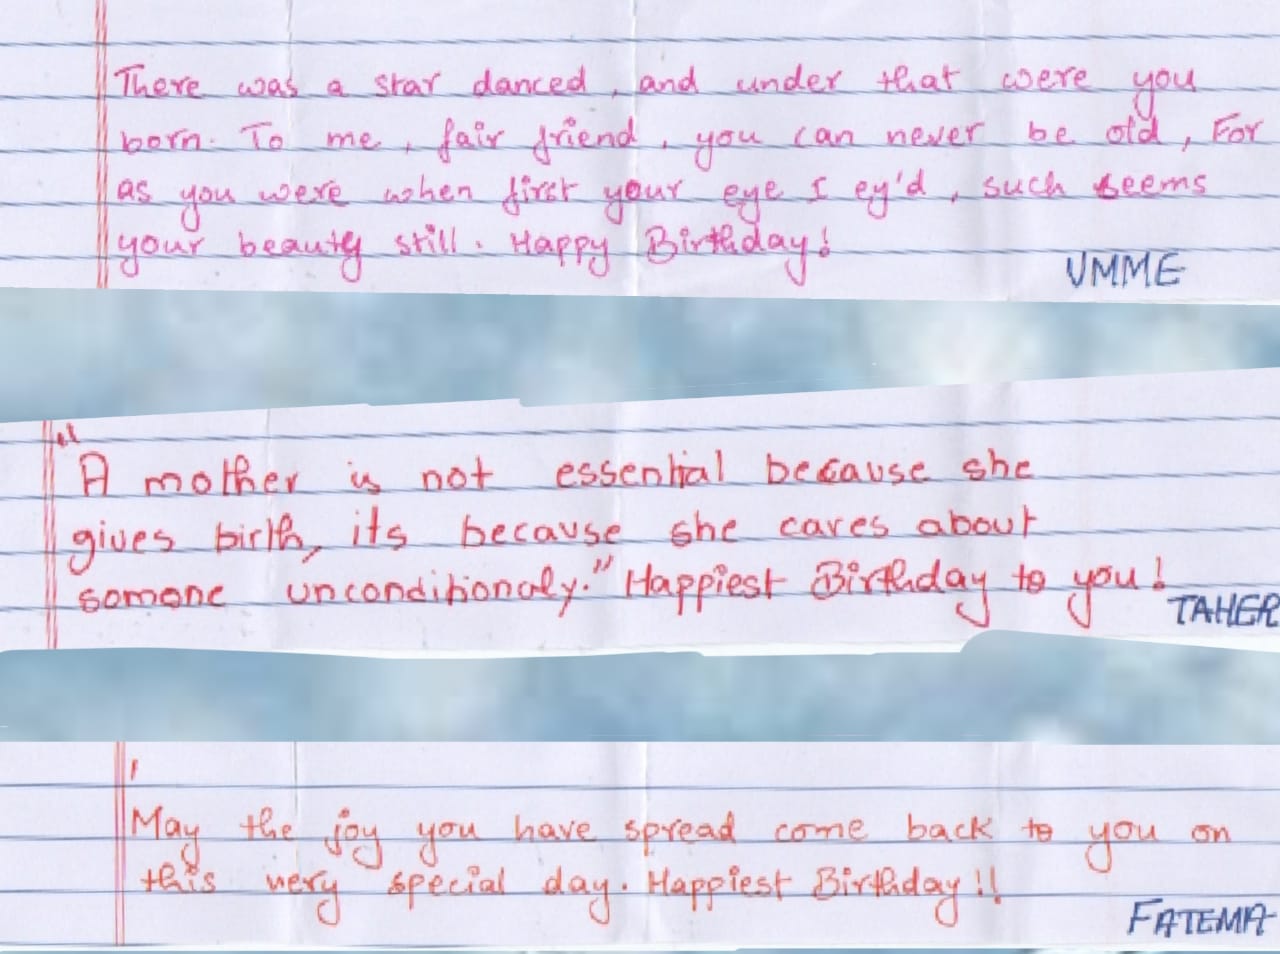 There was a star danced, and under that were you
born. To me, fair friend, you can never be old, For
as you were when first your eye I ey'd, such seems
your beauty still. Happy Birthday!
UMME
"A mother is not essential because she
gives birth, its because she cares about
somone unconditionaly." Happiest Birthday to you!
TAHER
May the joy you have spread come back to you on
this very special day. Happiest Birthday!!
FATEMA